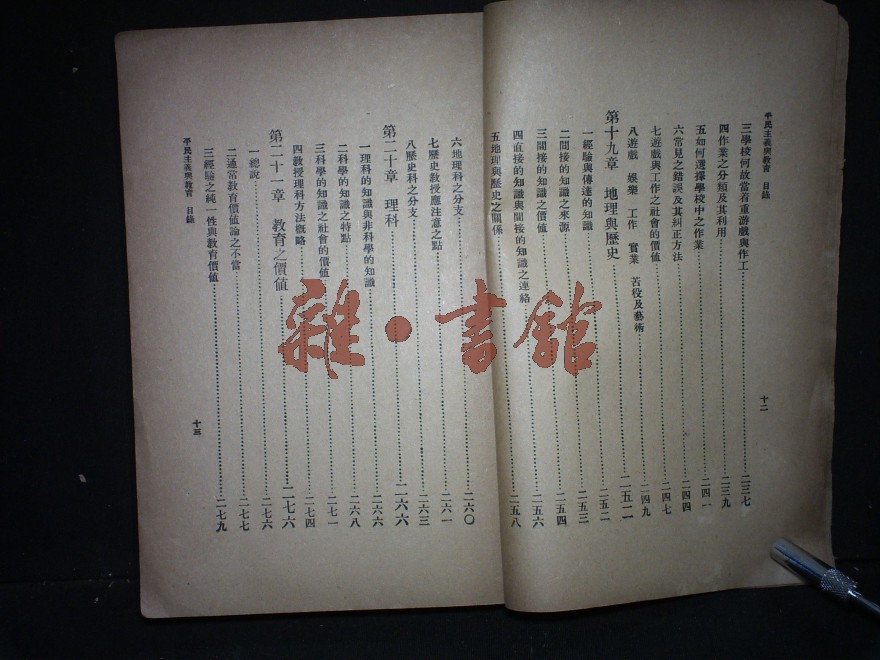 平民主義與教育 目錄
十二
三學校何故當着重游戲與作工……二三七
四作業之分類及其利用……二三九
五如何選擇學校中之作業……二四一
六常見之錯誤及其糾正方法……二四四
七遊戲與工作之社會的價值……二四七
八遊戲 娛樂 工作 實業 苦役及藝術……二四九
第十九章 地理與歷史……二五二
一經驗與傳達的知識……二五二
二間接的知識之來源……二五三
三間接的知識之價值……二五四
四直接的知識與間接的知識之連絡……二五六
五地理與歷史之關係……二五八
六地理科之分支……二六〇
七歷史教授應注意之點……二六一
八歷史科之分支……二六三
第二十章 理科……二六六
一理科的知識與非科學的知識……二六六
二科學的知識之特點……二六八
三科學的知識之社會的價值……二七一
四教授理科方法槪略……二七四
第二十一章 教育之價値……二七六
一總說……二七六
二通常教育價値論之不當……二七七
三經驗之純一性與教育價値……二七九
平民主義與教育 目錄
十三
雜·書館